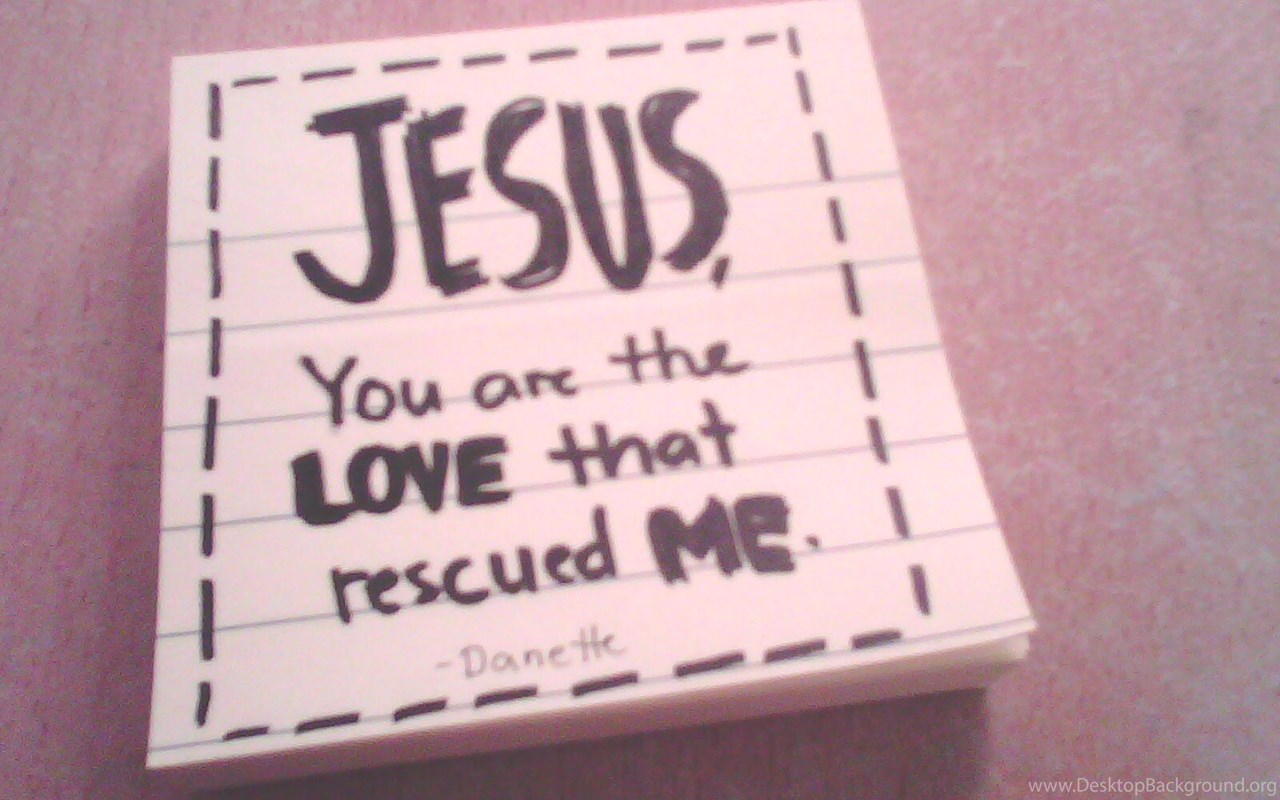 JESUS,
You are the
LOVE that
rescued ME.
-Danette
www.DesktopBackground.org